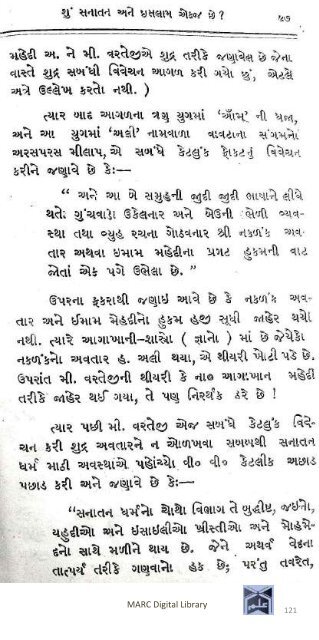 શું સનાતન અને ઇસ્લામ એકજ છે?
મહેદી અ. ને મી. વરતેજીએ શુદ્ર તરીકે જણાવેલ છે જેના
વાસ્તે શુદ્ર સબંધી વિવેચન આગળ કરી ગયો છું, એટલે
અત્રે ઉલ્લેખ કરતો નથી. )
ત્યાર બાદ આગળના ત્રણ યુગમાં ‘ઓમ્’ ની ધજા,
અને આ યુગમાં ‘અલી’ નામવાળા વાવટાના સંગમનો
અરસપરસ મીલાપ, એ સબંધે કેટલુંક ફોકટનું વિવેચન
કરીને જણાવે છે કે:—
“ અને આ બે સમુહની જુદી જુદી ભાષાને લીધે
થતો ગુંચવાડો ઉકેલનાર અને બેઉની ભેળી વ્યવ-
સ્થા તથા વ્યુહ રચના ગોઠવનાર શ્રી નકળંક અવ-
તાર અથવા ઇમામ મહેદીના પ્રગટ હુકમની વાટ
જોતાં એક પગે ઉભેલા છે. ”
ઉપરના ફકરાથી જણાઈ આવે છે કે નકળંક અવ-
તાર અને ઇમામ મેહદીનો હુકમ હજી સુધી જાહેર થયો
નથી. ત્યારે આગાખાની-શાસ્ત્રો ( જ્ઞાનો ) માં છે જેપેકો
નકળંકનો અવતાર હ. અલી થયા, એ થીયરી ખોટી પડે છે.
ઉપરાંત મી. વરતેજીની થીયરી કે ના૦ આગાખાન મહેદી
તરીકે જાહેર થઈ ગયા, તે પણ નિરર્થક ઠરે છે !
ત્યાર પછી મી. વરતેજી એજ સબંધે કેટલુંક વિવે-
ચન કરી શુદ્ર અવતારને ન ઓળખવા સબબથી સનાતન
ધર્મ માઠી અવસ્થાએ પહોંચ્યો વી૦ વી૦ કેટલીક અછાડ
પછાડ કરી અને જણાવે છે કે:—
“સનાતન ધર્મનો ચોથો વિભાગ તે બુદ્ધીષ્ટ, જઇનો,
યહુદીઓ અને ઇસાઈલીઓ ખ્રીસ્તીઓ અને મોહમે-
દનો સાથે મળીને થાય છે. જેને અથર્વ વેદના
તાત્પર્ય તરીકે ગણવાનો હક છે; પરંતુ તવરેત,
MARC Digital Library
121